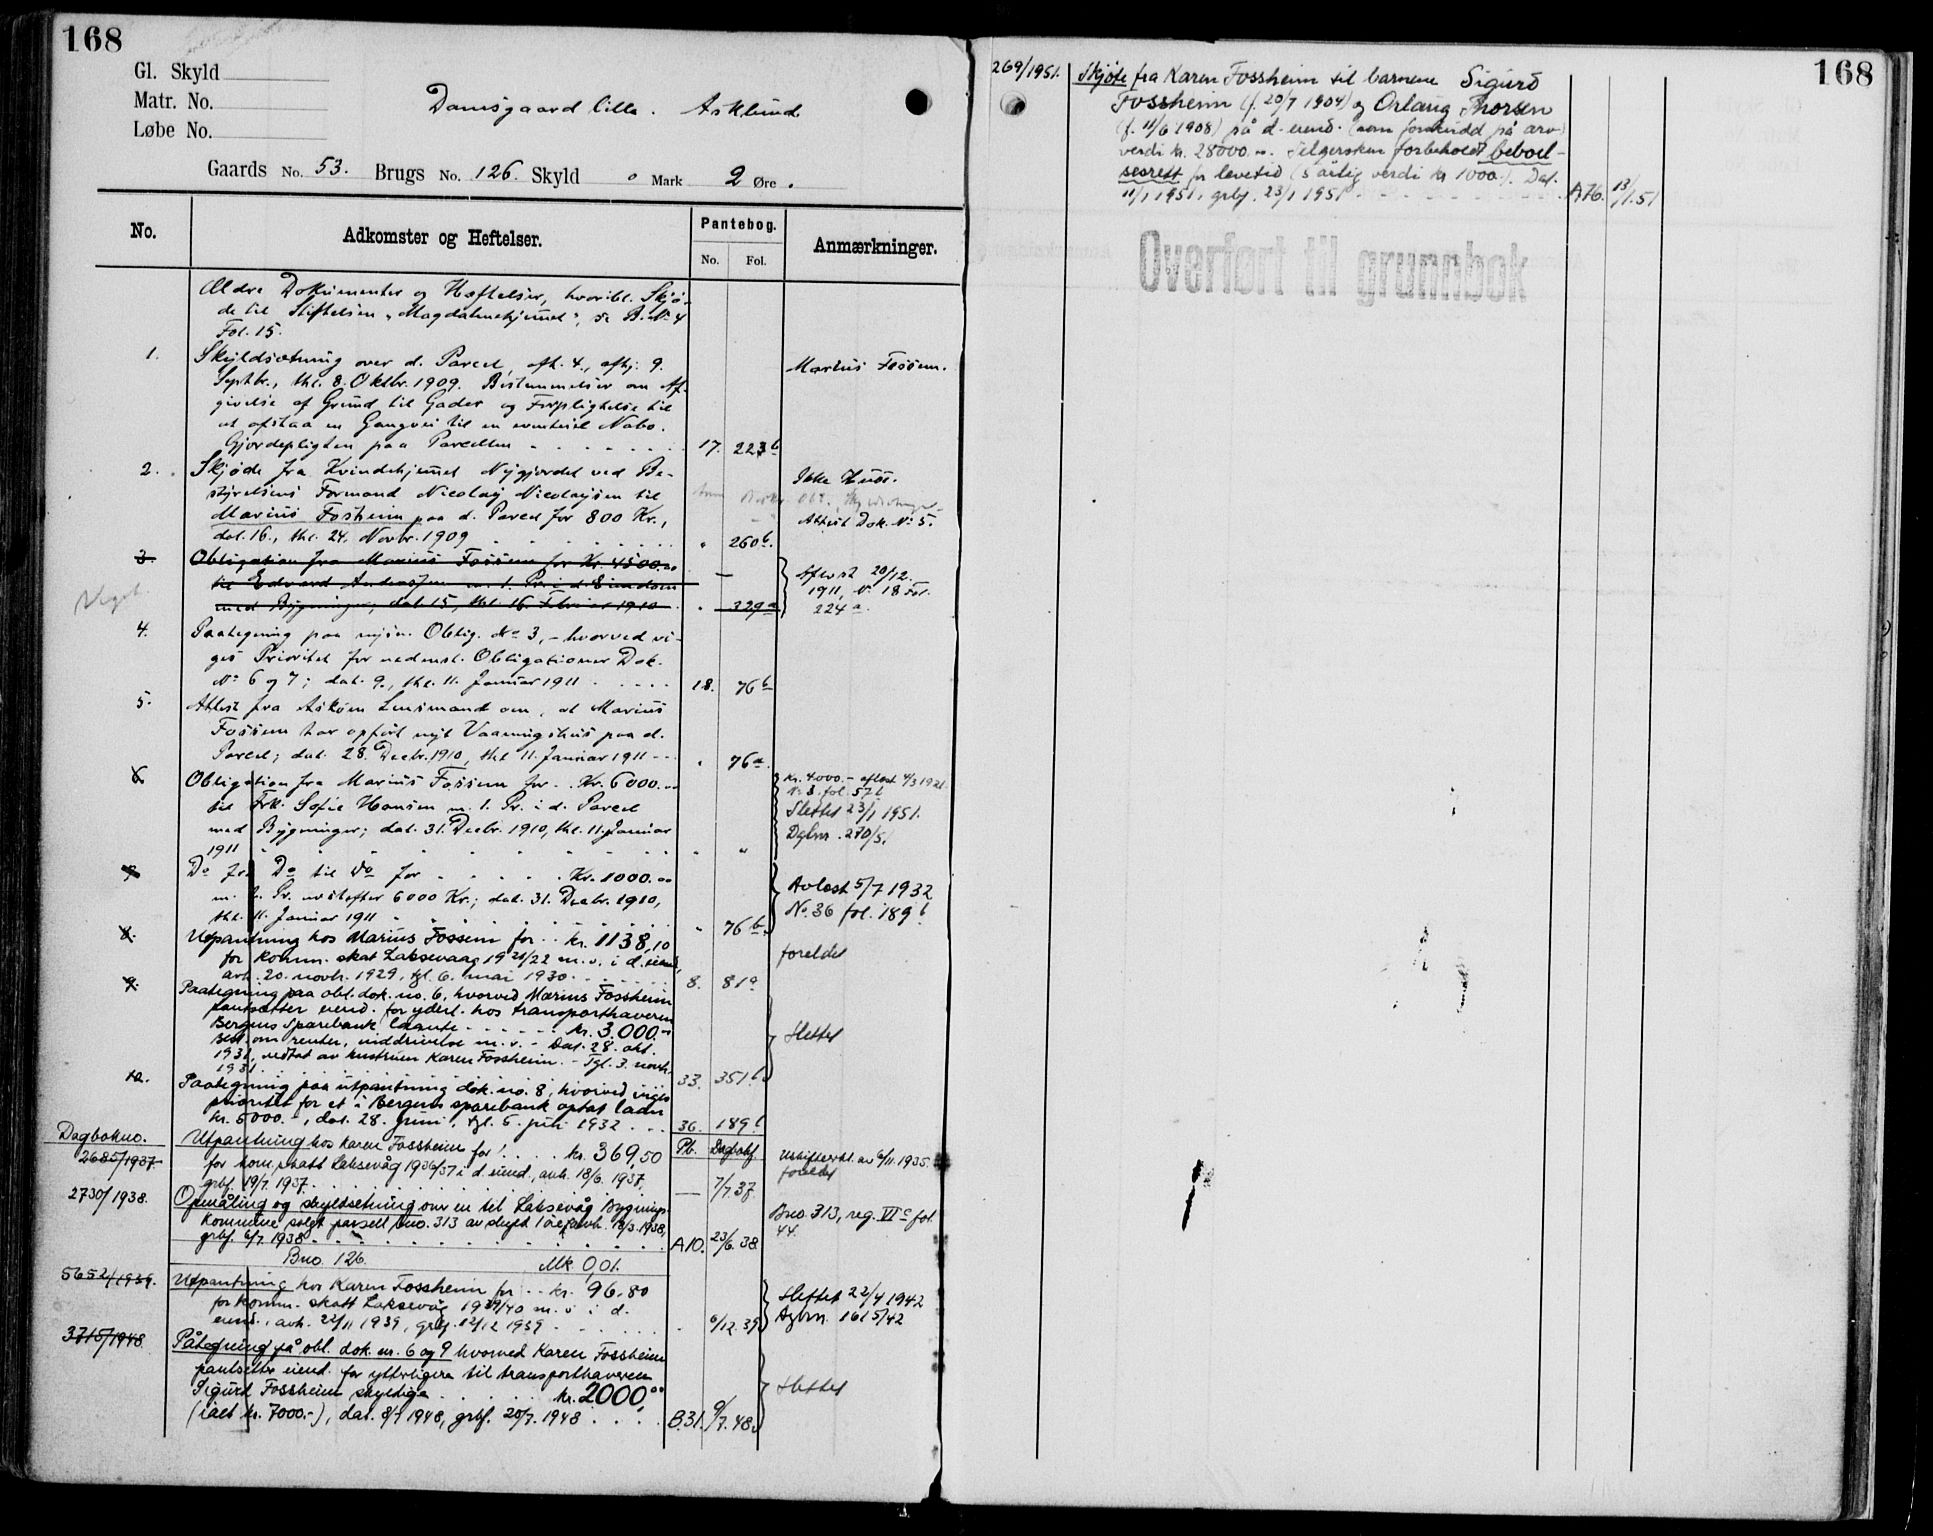 168
Gl. Skyld
Matr. No.
Løbe No.
Damsgaard lille. Asklund
Gaards No. 53. Brugs No. 126. Skyld 0 Mark 2 Øre.
No. Adkomster og Heftelser. Pantebog. No. Fol. Anmærkninger.
Ældre Dokumenter og Hæftelser, hvoribl. Skjø-
de til Stiftelsen "Magdalenehjemmet", se B. No 4
Fol. 15.
1. Skyldsætning over d. Parcel, afh. 4., afhj. 9. Marius Fossem.
Septbr., thl. 8. Oktbr. 1909. Bestemmelser om Af-
givelse af Grund til Gader og Forpligtelse til
at afstaa en Gangvei til en eventuel Nabo.
Gjerdepligten paa Parcellen 17. 223b
2. Skjøde fra Kvindehjemmet Nygjordet ved Be- Ikke Huse.
styrelsens Formand Nicolay Nicolaysen til
Marius Fosheim paa d. Parcel for 800 Kr., Attest Dok. No 5.
dat. 16., thl. 24. Novbr. 1909 " 260b.
3. Obligation fra Marius Fossem for Kr. 4500.00
til Edvard Andreassen m. 1. Pr. i d. Eiendom Aflæst 20/12.
1911, No 18 Fol.
med Bygninger; dat. 15., thl. 16. Februar 1910 " 329a 224a.
4. Paategning paa nysn. Oblig. No 3, - hvorved vi-
ges Prioritet for nedenst. Obligationer Dok.
No 6 og 7; dat. 9., thl. 11. Januar 1911 18. 76b
5. Attest fra Askøen Lensmand om, at Marius
Fossem har opført nyt Vaaningshus paa d.
Parcel; dat. 28. Decbr. 1910, thl. 11. Januar 1911 " 76a.
6. Obligation fra Marius Fossem for Kr. 6000.00 Kr. 4000.- aflæst 4/3 1921
til Frk. Sofie Hansen m. 1. Pr. i d. Parcel No 3. fol. 57b
med Bygninger; dat. 31. Decbr. 1910, thl. 11. Januar Slettet 23/1 1951.
1911 " " Dgbnr. 270/51
7. Do fra Do til Do for Kr. 1000.00
m. 2. Pr. næstefter 6000 Kr.; dat. 31. Decbr. 1910, Avlæst 5/7 1932
thl. 11. Januar 1911 " 76b. No. 36 fol. 189b
8. Utpantning hos Marius Fossem for kr. 1138,10
for komm. skat Laksevaag 1921/22 m. v. i d. eiend., foreldet
avh. 20. novbr. 1929, tgl. 6. mai 1930 8. 81a
9. Paategning paa obl. dok. no. 6, hvorved Marius Fossheim
pantsætter eiend. for yderl. hos transporthaveren
Bergens Sparebank laante kr. 3.000.- Slettet
Best. om renter, inddrivelse m. v. - Dat. 28. okt.
1931, vedtat av hustruen Karen Fossheim. - Tgl. 3. novbr.
1931 33. 351b
10. Paategning paa utpantning dok. no. 8, hvorved viges
prioritet for et i Bergens sparebank optat laan
kr. 5000.-, dat. 28. juni, tgl. 5. juli 1932 36. 189b
Dagbokno. Pb. Dagbokf.
2685/1937 Utpantning hos Karen Fossheim for kr. 369,50 Uskifteerkl. av 6/11. 1935.
for kom. skatt Laksevåg 1936/37 i d. eiend., avh. 18/6. 1937, foreldet
grbf. 19/7. 1937. — 7/7. 37.
2730/1938. Opmåling og skyldsetning over en til Laksevåg Bygnings-
kommune solgt parsell bno. 313 av skyld 1 øre, avh. 18/3. 1938, Bno. 313, reg. VI c fol.
grbf. 6/7. 1938 A10. 23/6. 38. 44.
Bno. 126. Mk. 0,01.
5652/1939. Utpantning hos Karen Fossheim for kr. 96,80
for komm. skatt Laksevåg 1939/40 m. v. i d. Slettet 22/4 1942
eiend., avh. 22/11 1939, grbf. 12/12 1939 - 6/12. 39. Dgbnr. 1615/42
3715/1948. Påtegning på obl. dok. nr. 6 og 9 hvorved Karen Fossheim
pantsetter eiend. for ytterligere til transporthaveren
Sigurd Fossheim skyldige kr. 2000,00 Slettet
(ialt kr. 7000.-), dat. 8/7 1948, grbf. 20/7. 1948 B31. 9/7. 48.
168
269/1951. Skjøte fra Karen Fossheim til barnene Sigurd
Fossheim (f. 20/7 1904) og Orlaug Thorsen
(f. 11/6 1908) på d. eiend. (som forskudd på arv)
verdi kr. 28000.00. Selgersken forbeholdt beboel-
sesrett for levetid (5 årlig verdi kr 1000.-). Dat.
11/1 1951, grbf. 23/1 1951 A76. 13/1. 51
Overført til grunnbok